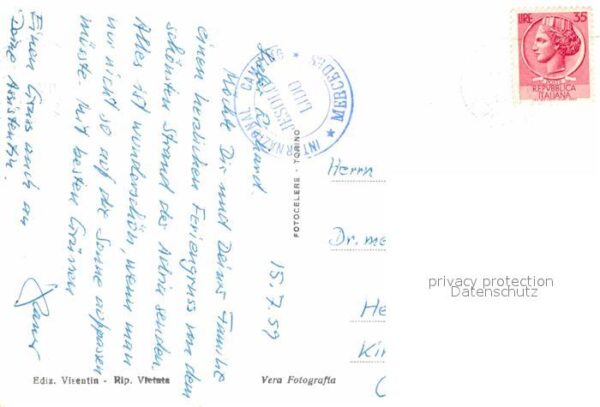 15.7.59
Lieber Roland.
Möchte Dir und Deiner Familie
einen herzlichen Feriengruss von dem
schönsten Strand des Adria senden.
Alles ist wunderschön, wenn man
nur nicht so auf die Sonne aufpassen
müsste. Mit besten Grüssen
Einen Gruss auch an
Deine Assistentin.
INTERNATIONAL CAMPING
JESOLO
LIDO
MERCEDES
FOTOCELERE - TORINO
LIRE 35
REPVBBLICA
ITALIANA
Herrn
Dr. me
He
Kin
privacy protection
Datenschutz
Ediz. Visentin - Rip. Vietata
Vera Fotografia